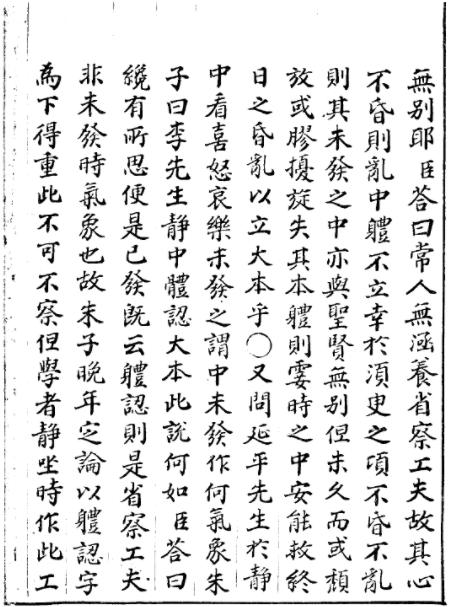 無別耶臣答曰常人無涵養省察工夫故其心
不昏則亂中體不立幸於須臾之頃不昏不亂
則其未發之中亦與聖賢無別但未久而或頹
放或膠擾旋失其本體則霎時之中安能救終
日之昏亂以立大本乎○又問延平先生於靜
中看喜怒哀樂未發之謂中未發作何氣象朱
子曰李先生靜中體認大本此說何如臣答曰
纔有所思便是已發旣云體認則是省察工夫
非未發時氣象也故朱子晚年定論以體認字
爲下得重此不可不察但學者靜坐時作此工